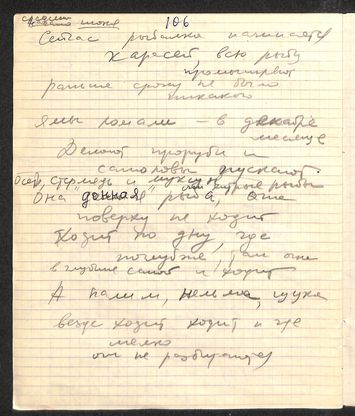 106
Сейчас рыбалка начинается
карасей, всю рыбу
промышляют
раньше сроку не было
никакого
ямы ломали – в декабре
месяце
Делают проруби и
самоловы пускают.
Осетр, стерлядь и муксун рыбы
Она "донная" рыба, они
поверху не ходят
Ходит по дну, где
поглубже, там они
в глубине самой и ходят
А налим, нельма, щука
везде ходят ходят и где
мелко
они не разбираются